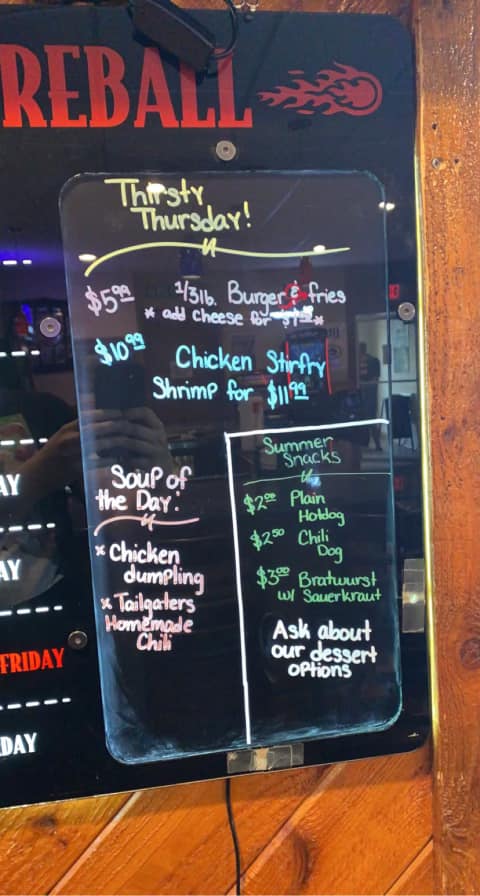 REBALL
Thirsty
Thursday!
$5.99 1/3lb. Burger & fries
* add Cheese for *
$10.99 Chicken Stirfry
Shrimp for $11.99
Soup of
the Day:
* Chicken
dumpling
* Tailgaters
Homemade
Chili
Summer
Snacks
$2.00 Plain
Hotdog
$2.50 Chili
Dog
$3.00 Bratwurst
w/ Sauerkraut
Ask about
our dessert
options
AY
AY
FRIDAY
DAY